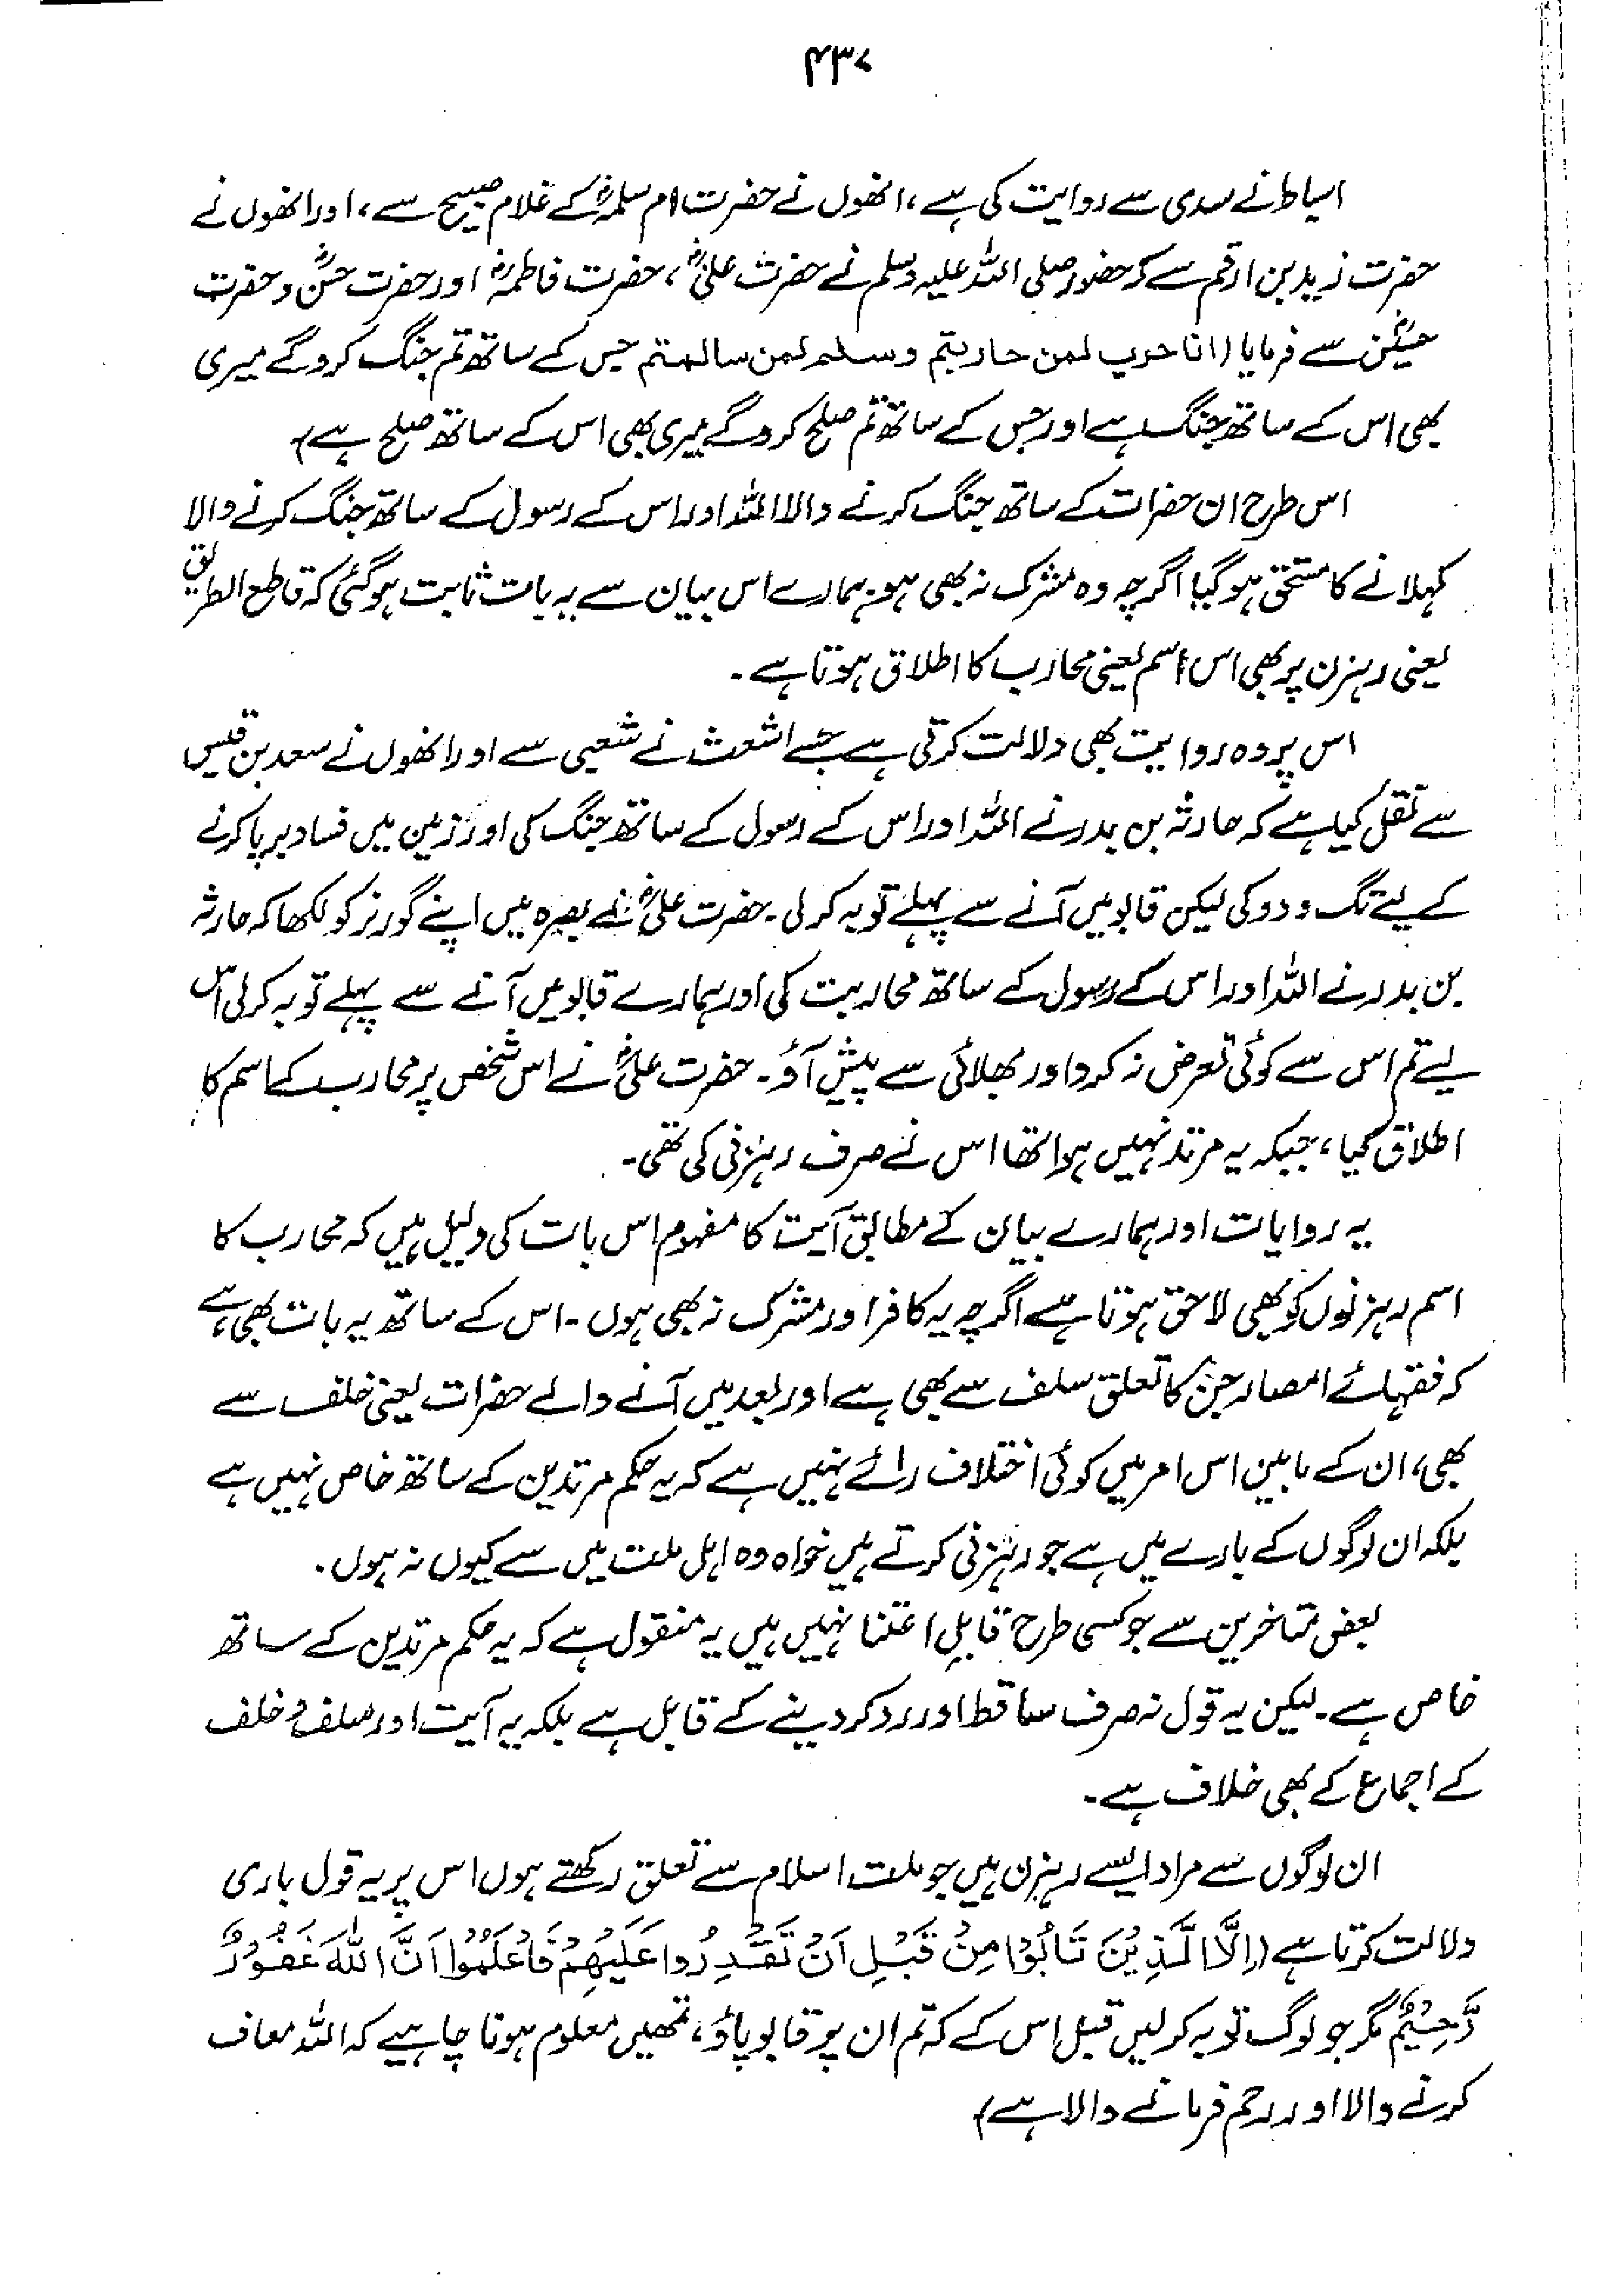 ۴۳۷
اسباط نے سدی سے روایت کی ہے، انھوں نے حضرت ام سلمہؓ کے غلام صبیح سے، اور انھوں نے
حضرت زید بن ارقم سے کہ حضور صلی اللہ علیہ وسلم نے حضرت علیؓ، حضرت فاطمہؓ اور حضرت حسنؓ و حضرت
حسینؓ سے فرمایا (انا حرب لمن حاربتم وسلم لمن سالمتم جس کے ساتھ تم جنگ کرو گے میری
بھی اس کے ساتھ جنگ ہے اور جس کے ساتھ تم صلح کرو گے میری بھی اس کے ساتھ صلح ہے)
اس طرح ان حضرات کے ساتھ جنگ کرنے والا اللہ اور اس کے رسول کے ساتھ جنگ کرنے والا
کہلانے کا مستحق ہو گیا اگرچہ وہ مشرک نہ بھی ہو۔ ہمارے اس بیان سے یہ بات ثابت ہو گئی کہ قاطع الطریق
یعنی رہزن پر بھی اس اسم یعنی محارب کا اطلاق ہوتا ہے۔
اس پر وہ روایت بھی دلالت کرتی ہے جسے اشعث نے شعبی سے اور انھوں نے سعد بن قیس
سے نقل کیا ہے کہ حارثہ بن بدر نے اللہ اور اس کے رسول کے ساتھ جنگ کی اور زمین میں فساد برپا کرنے
کے لیے تگ و دو کی لیکن قابو میں آنے سے پہلے توبہ کر لی۔ حضرت علیؓ نے بصرہ میں اپنے گورنر کو لکھا کہ حارثہ
بن بدر نے اللہ اور اس کے رسول کے ساتھ محاربت کی اور ہمارے قابو میں آنے سے پہلے توبہ کر لی اس
لیے تم اس سے کوئی تعرض نہ کرو اور بھلائی سے پیش آؤ۔ حضرت علیؓ نے اس شخص پر محارب کے اسم کا
اطلاق کیا، جبکہ یہ مرتد نہیں ہوا تھا اس نے صرف رہزنی کی تھی۔
یہ روایات اور ہمارے بیان کے مطابق آیت کا مفہوم اس بات کی دلیل ہیں کہ محارب کا
اسم رہزنوں کو بھی لاحق ہوتا ہے اگرچہ یہ کافر اور مشرک نہ بھی ہوں۔ اس کے ساتھ یہ بات بھی ہے
کہ فقہائے امصار جن کا تعلق سلف سے بھی ہے اور بعد میں آنے والے حضرات یعنی خلف سے
بھی، ان کے مابین اس امر میں کوئی اختلاف رائے نہیں ہے کہ یہ حکم مرتدین کے ساتھ خاص نہیں ہے
بلکہ ان لوگوں کے بارے میں ہے جو رہزنی کرتے ہیں خواہ وہ اہل ملت میں سے کیوں نہ ہوں۔
بعض متاخرین سے جو کسی طرح قابلِ اعتنا نہیں ہیں یہ منقول ہے کہ یہ حکم مرتدین کے ساتھ
خاص ہے۔ لیکن یہ قول نہ صرف ساقط اور رد کر دینے کے قابل ہے بلکہ یہ آیت اور سلف و خلف
کے اجماع کے بھی خلاف ہے۔
ان لوگوں سے مراد ایسے رہزن ہیں جو ملت اسلام سے تعلق رکھتے ہوں اس پر یہ قول باری
دلالت کرتا ہے (اِلَّا الَّذِیْنَ تَابُوْا مِنْ قَبْلِ اَنْ تَقْدِرُوْا عَلَیْهِمْ فَاعْلَمُوْا اَنَّ اللّٰهَ غَفُوْرٌ
رَّحِیْمٌ مگر جو لوگ توبہ کر لیں قبل اس کے کہ تم ان پر قابو پاؤ، تمھیں معلوم ہونا چاہیے کہ اللہ معاف
کرنے والا اور رحم فرمانے والا ہے)